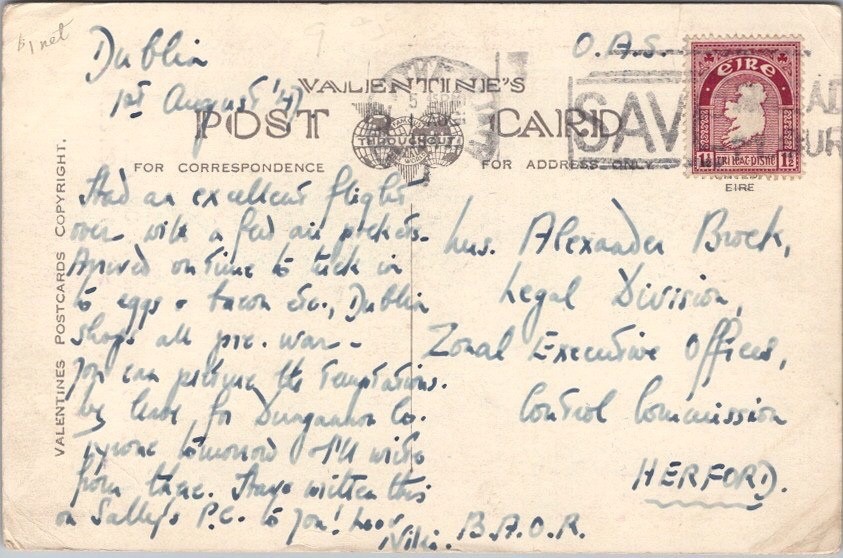 $1 net
Dublin
1st August '47
O.A.S.
VALENTINE'S
POST CARD
THROUGHOUT
FOR CORRESPONDENCE
FOR ADDRESS ONLY
EIRE
VALENTINES POSTCARDS COPYRIGHT.
5
AUG
SAV
EIRE
1½ 1½
Had an excellent flight
over with a few air pockets.
Arrived on time to tuck in
to eggs & bacon etc., Dublin
shops all pre. war -
you can picture the temptations.
We leave for Dungannon Co.
Tyrone tomorrow & I'll write
from there. Have written this
on Sally's P.C. to you! Love
Niki.
Mrs. Alexander Brock,
Legal Division,
Zonal Executive Offices,
Control Commission
HERFORD.
B.A.O.R.